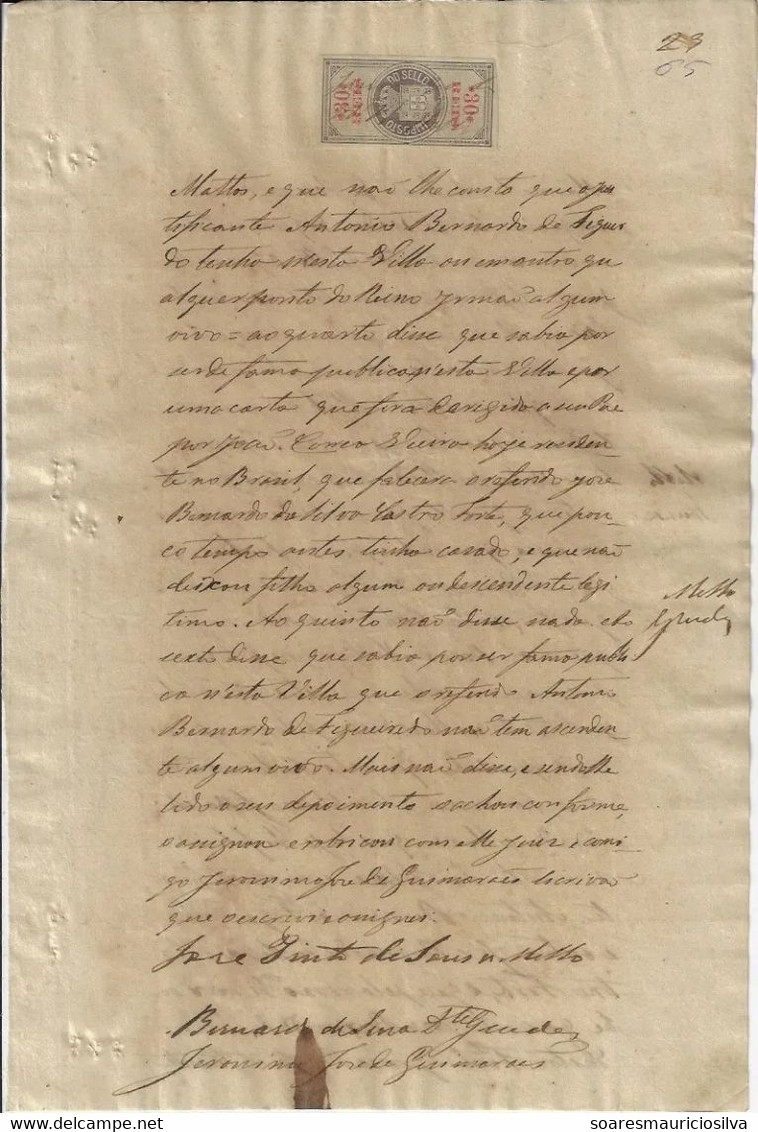 23
65
IMPOSTO DO SELLO
30 REIS
30 REIS
Mattos, e que naõ lhe consta que o jus
tificante Antonio Bernardo de Figuei
do tenha nesta Villa ou em outro qu
alquer ponto do Reino Yrmaõ algum
vivo = ao quarto disse que sabia por
ser de fama publica n'esta Villa e por
uma carta que fora derigida a seu Pae
por Joaõ Correa Vieira hoje residen
te no Brasil, que falecera o referido Jose
Bernardo da Silva Castro Forte, que pou-
co tempo antes tinha casado, e que naõ
deixou filho algum ou descendente legi
timo. Ao quinto naõ disse nada. Ao
sexto disse que sabia por ser fama publi
ca n'esta Villa que o referido Antonio
Bernardo de Figueiredo naõ tem ascenden-
te algum vivo. Mais naõ disse, e sendo lhe
lido o seu depoimento o achou conforme,
e assignou e rubricou com elle Juiz e comi-
go Jeronimo Jose de Guimaraẽs Escrivaõ
que o escrevi e assignei.
Mello
Guedes
Jose Pinto de Sousa Mello
Bernardo de Guedes
Jeronimo Jose de Guimaraes
soaresmauriciosilva